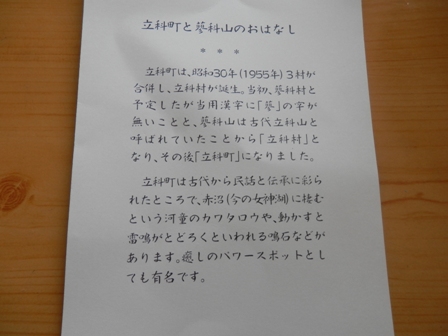 立科町と蓼科山のおはなし
＊ ＊ ＊
立科町は、昭和30年(1955年)3村が
合併し、立科村が誕生。当初、蓼科村と
予定したが当用漢字に「蓼」の字が
無いことと、蓼科山は古代立科山と
呼ばれていたことから「立科村」と
なり、その後「立科町」になりました。
立科町は古代から民話と伝承に彩ら
れたところで、赤沼(今の女神湖)に棲む
という河童のカワタロウや、動かすと
雷鳴がとどろくといわれる鳴石などが
あります。癒しのパワースポットとし
ても有名です。